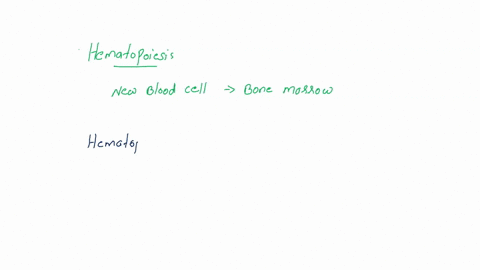 Hematopoiesis
New Blood cell → Bone marrow
Hematop